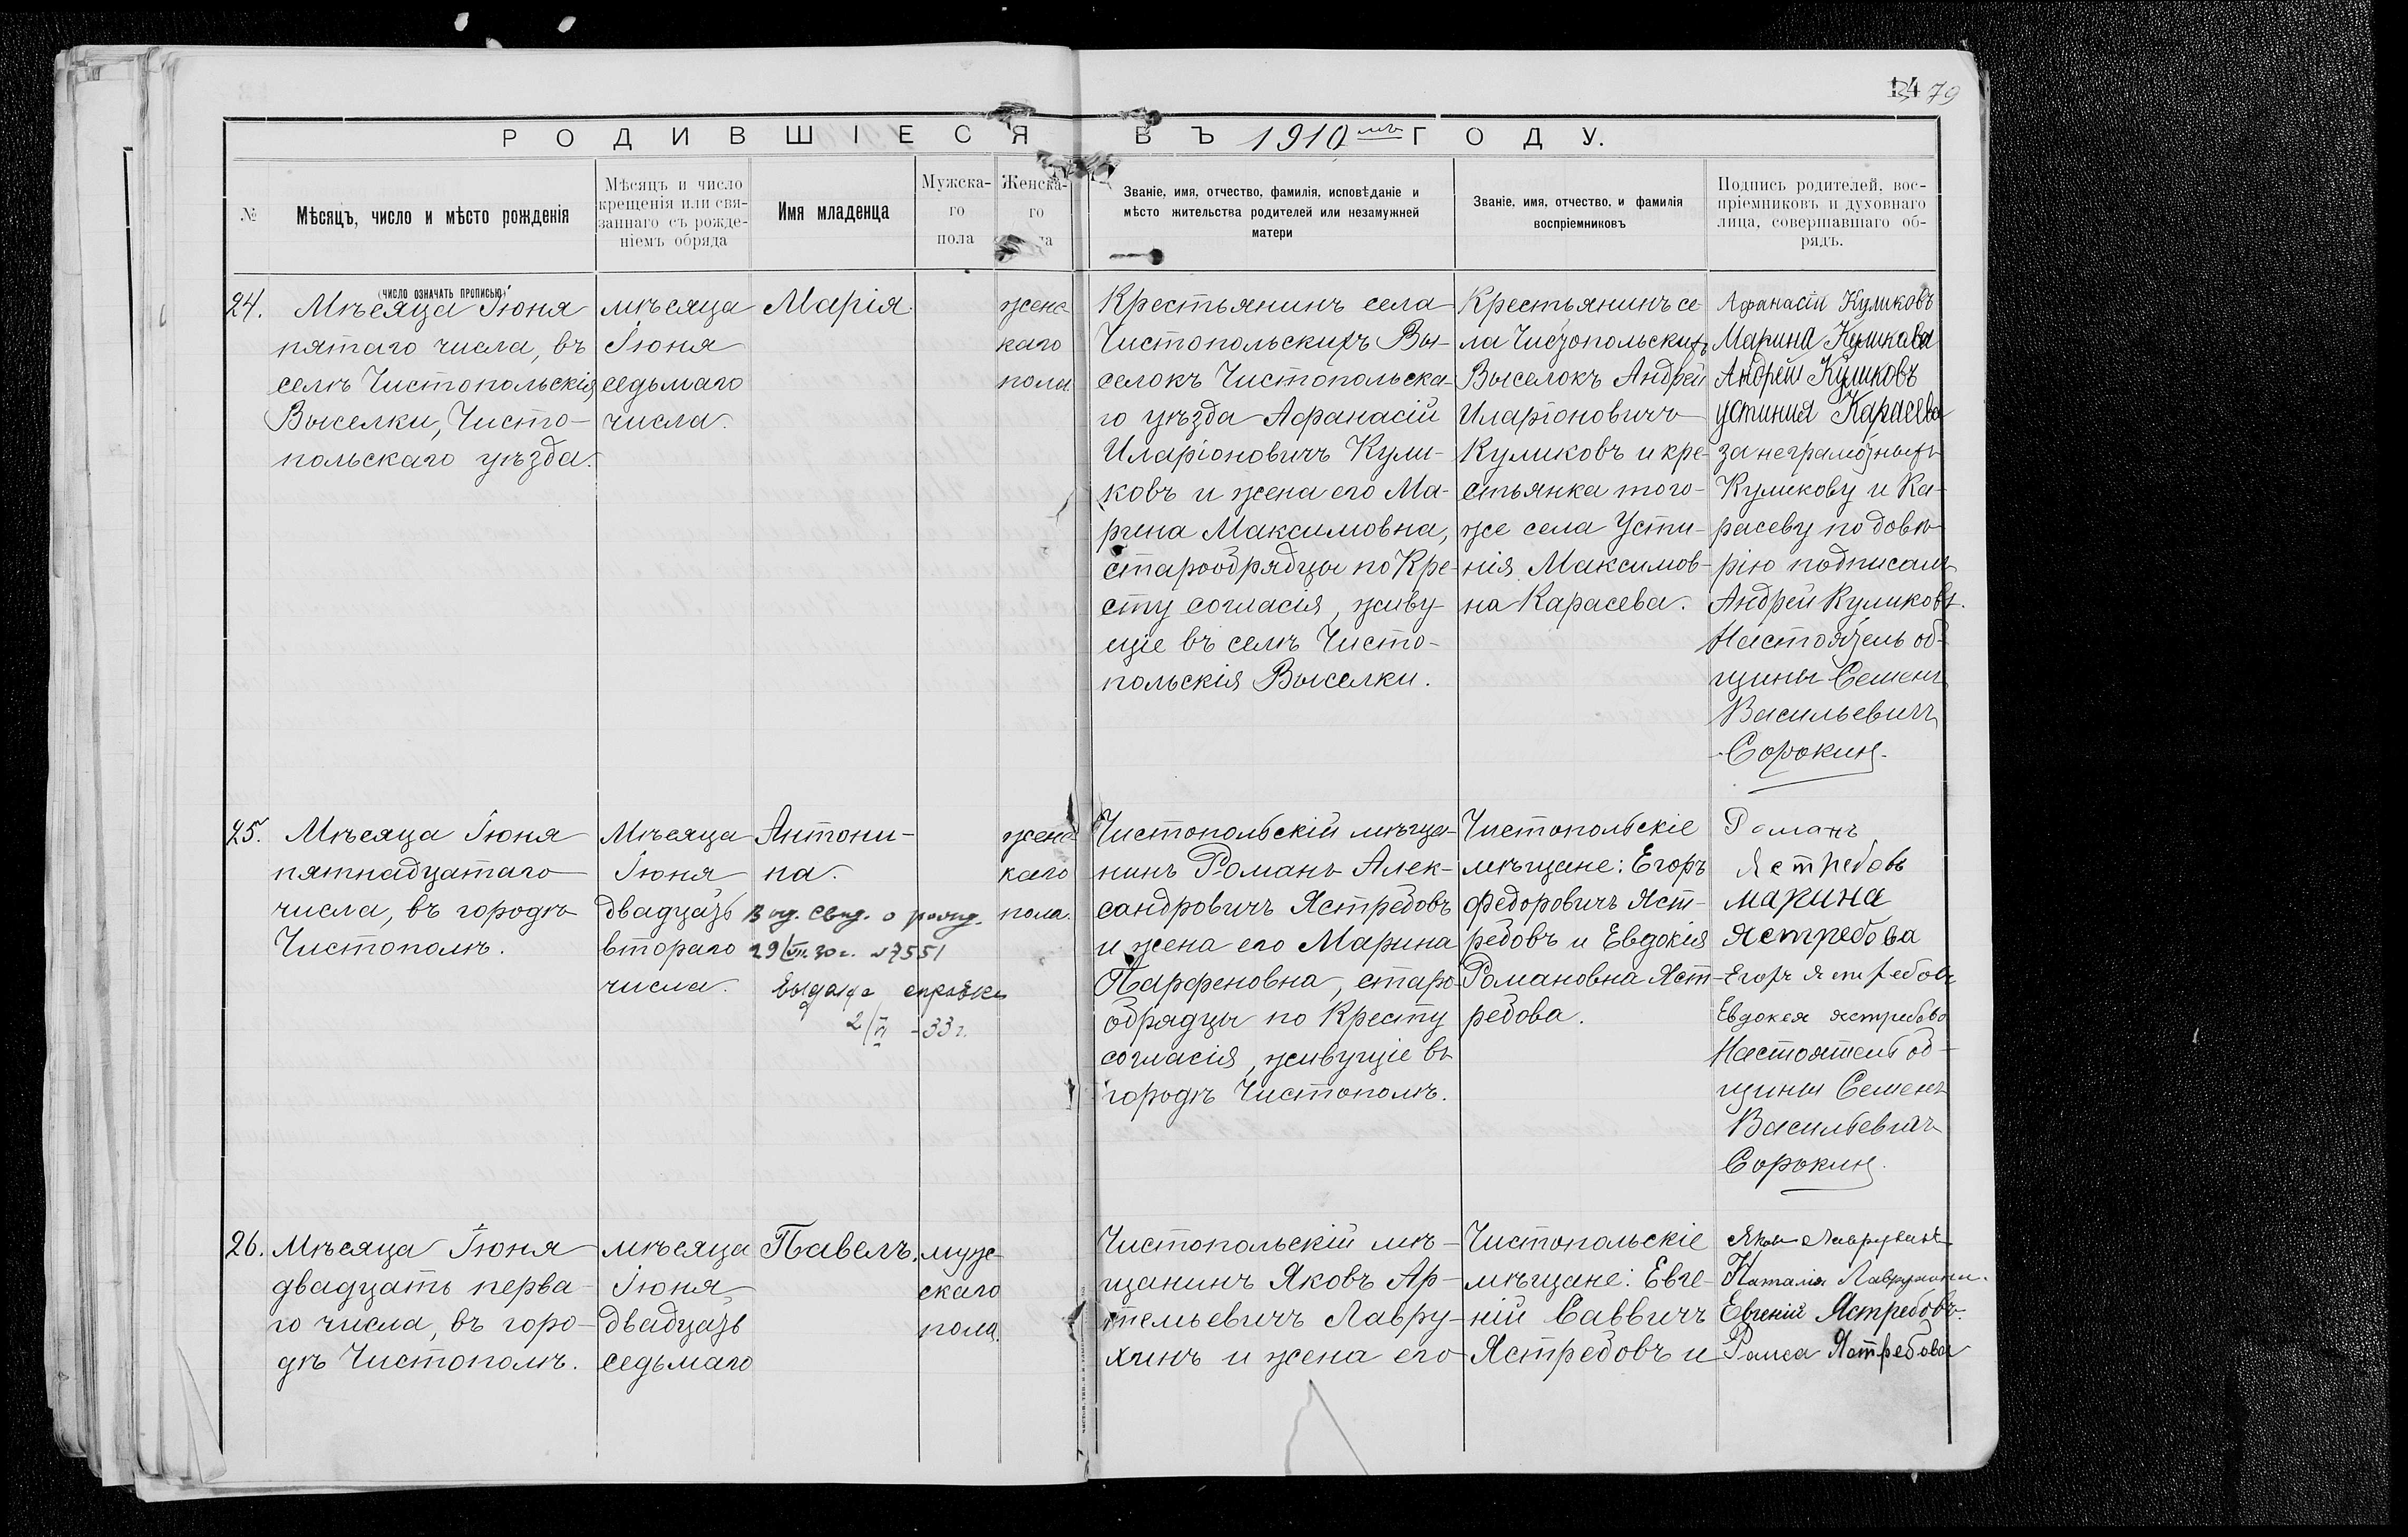 14 79
РОДИВШІЕСЯ ВЪ 1910мъ ГОДУ.
№
Мѣсяцъ, число и мѣсто рожденія
(число означать прописью)
Мѣсяцъ и число
крещенія или свя-
заннаго съ рожде-
ніемъ обряда
Имя младенца
Мужска-
го
пола
Женска-
го
Званіе, имя, отчество, фамилія, исповѣданіе и
мѣсто жительства родителей или незамужней
матери
Званіе, имя, отчество, и фамилія
воспріемниковъ
Подпись родителей, вос-
пріемниковъ и духовнаго
лица, совершавшаго об-
рядъ.
24.
Мѣсяца Іюня
пятаго числа, въ
селѣ Чистопольскія
Выселки, Чисто-
польскаго уѣзда.
мѣсяца
Іюня
седьмаго
числа.
Марія.
женс-
каго
пола.
Крестьянинъ села
Чистопольскихъ Вы-
селокъ Чистопольска-
го уѣзда Афанасій
Иларіоновичъ Кули-
ковъ и жена его Ма-
рина Максимовна,
старообрядцы по Кре-
сту согласія, живу-
щіе въ селѣ Чисто-
польскія Выселки.
Крестьянинъ се-
ла Чистопольскихъ
Выселокъ Андрей
Иларіоновичъ
Куликовъ и кре-
стьянка того-
же села Усти-
нія Максимов-
на Карасева.
Афанасіи Куликовъ
Марина Куликова
Андрей Куликовъ
устиния Карасева
за неграмотныхъ
Куликову и Ка-
расеву по довѣ-
рію подписалъ
Андрей Куликовъ.
Настоятель об-
щины Семенъ
Васильевичъ
Сорокин.
25.
Мѣсяца Іюня
пятнадцатаго
числа, въ городѣ
Чистополѣ.
Мѣсяца
Іюня
двадцать
втораго
числа.
Антони-
на.
Выд. свид. о рожд.
29/VII.30г. №7551
Выдана справка
2/II-33г.
женс-
каго
пола.
Чистопольскій мѣща-
нинъ Романъ Алек-
сандровичъ Ястребовъ
и жена его Марина
Парфеновна, старо-
обрядцы по Кресту
согласія, живущіе въ
городѣ Чистополѣ.
Чистопольскіе
мѣщане: Егоръ
Федоровичъ Яст-
ребовъ и Евдокія
Романовна Яст-
ребова.
Романъ
Ястребовъ
марина
Ястребова
Егоръ Ястребовъ
Евдокея ястребова
Настоятель об-
щины Семенъ
Васильевичъ
Сорокин.
26.
Мѣсяца Іюня
двадцать перва-
го числа, въ горо-
дѣ Чистополѣ.
мѣсяца
Іюня
двадцать
седьмаго
Павелъ.
муж-
скаго
пола.
Чистопольскій мѣ-
щанинъ Яковъ Ар-
темьевичъ Лавру-
хинъ и жена его
Чистопольскіе
мѣщане: Евге-
ній Саввичъ
Ястребовъ и
Яковъ Лаврухинъ
Наталія Лаврухина.
Евгеній Ястребовъ.
Раиса Ястребова